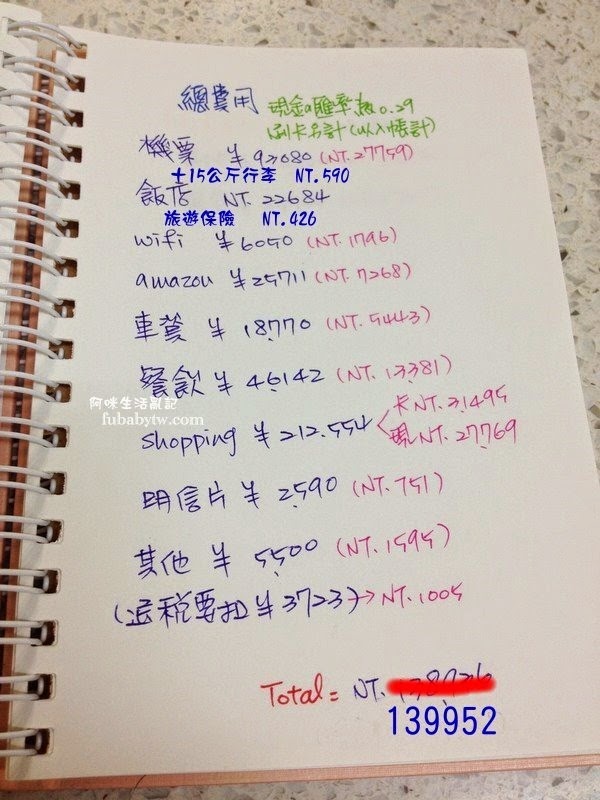 總費用 現金a匯率抓0.29
刷卡另計(以入帳計)
機票 ¥92080 (NT.27759)
+15公斤行李 NT.590
飯店 NT.22684
旅遊保險 NT.426
wifi ¥6050 (NT.1796)
amazon ¥25711 (NT.7268)
車資 ¥18,770 (NT.5443)
餐飲 ¥46,142 (NT.13,381)
阿咪生活亂記
fubabytw.com
shopping ¥212.554 卡NT.31495
現NT.27,769
明信片 ¥2,590 (NT.751)
其他 ¥5,500 (NT.1595)
(退稅要扣¥3723)→NT.1005
Total = NT.
139952